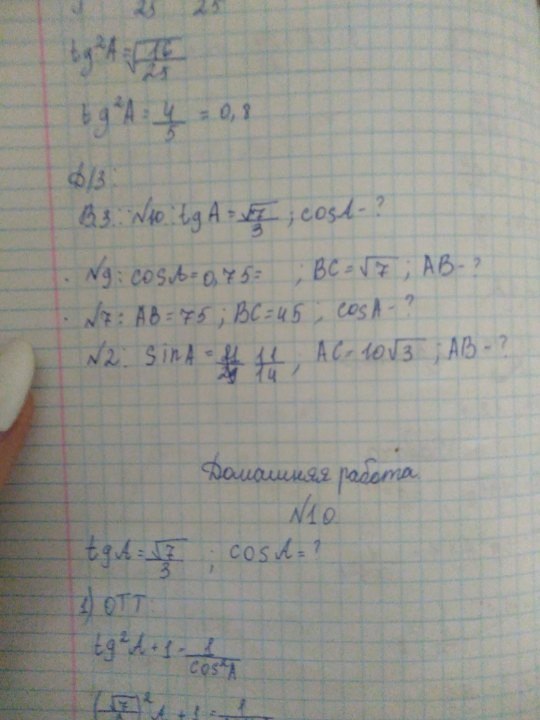 25 25
tg²A = √16/25
tg²A = 4/5 = 0,8
Д/З:
В3: №10: tgA = √7/3 ; cosA - ?
№9: cosA = 0,75 = ; BC = √7 ; AB - ?
№7: AB = 75 ; BC = 45 ; cosA - ?
№2: SinA = 11/14 ; AC = 10√3 ; AB - ?
Домашняя работа.
№10
tgA = √7/3 ; cosA = ?
1) ОТТ
tg²A + 1 = 1/cos²A
(√7/3)²A + 1 = 1